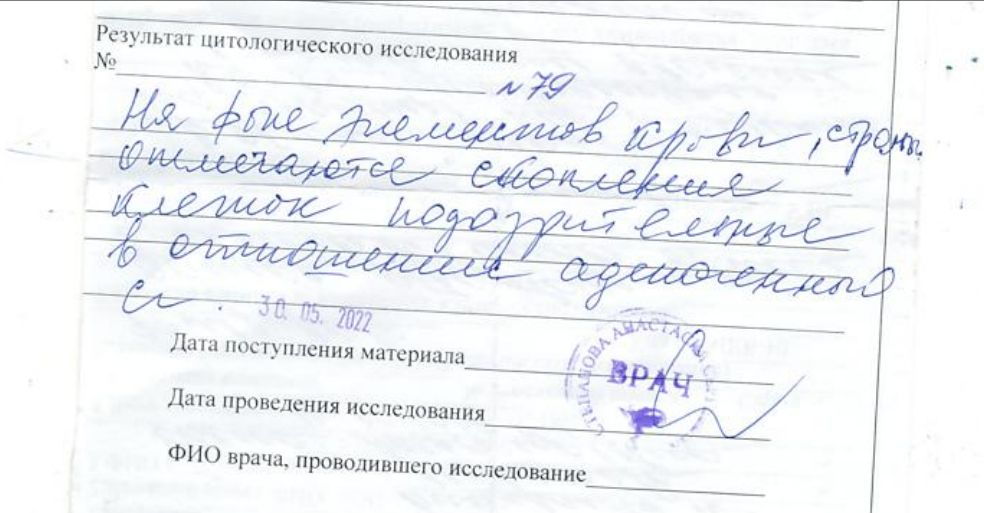 Результат цитологического исследования
№ N79
На фоне элементов крови, стромы
отмечаются скопления
клеток подозрительные
в отношении аденогенный
cr.
30. 05. 2022
Дата поступления материала
СТЕПАНОВА АНАСТАСИЯ
ВРАЧ
Дата проведения исследования
ФИО врача, проводившего исследование